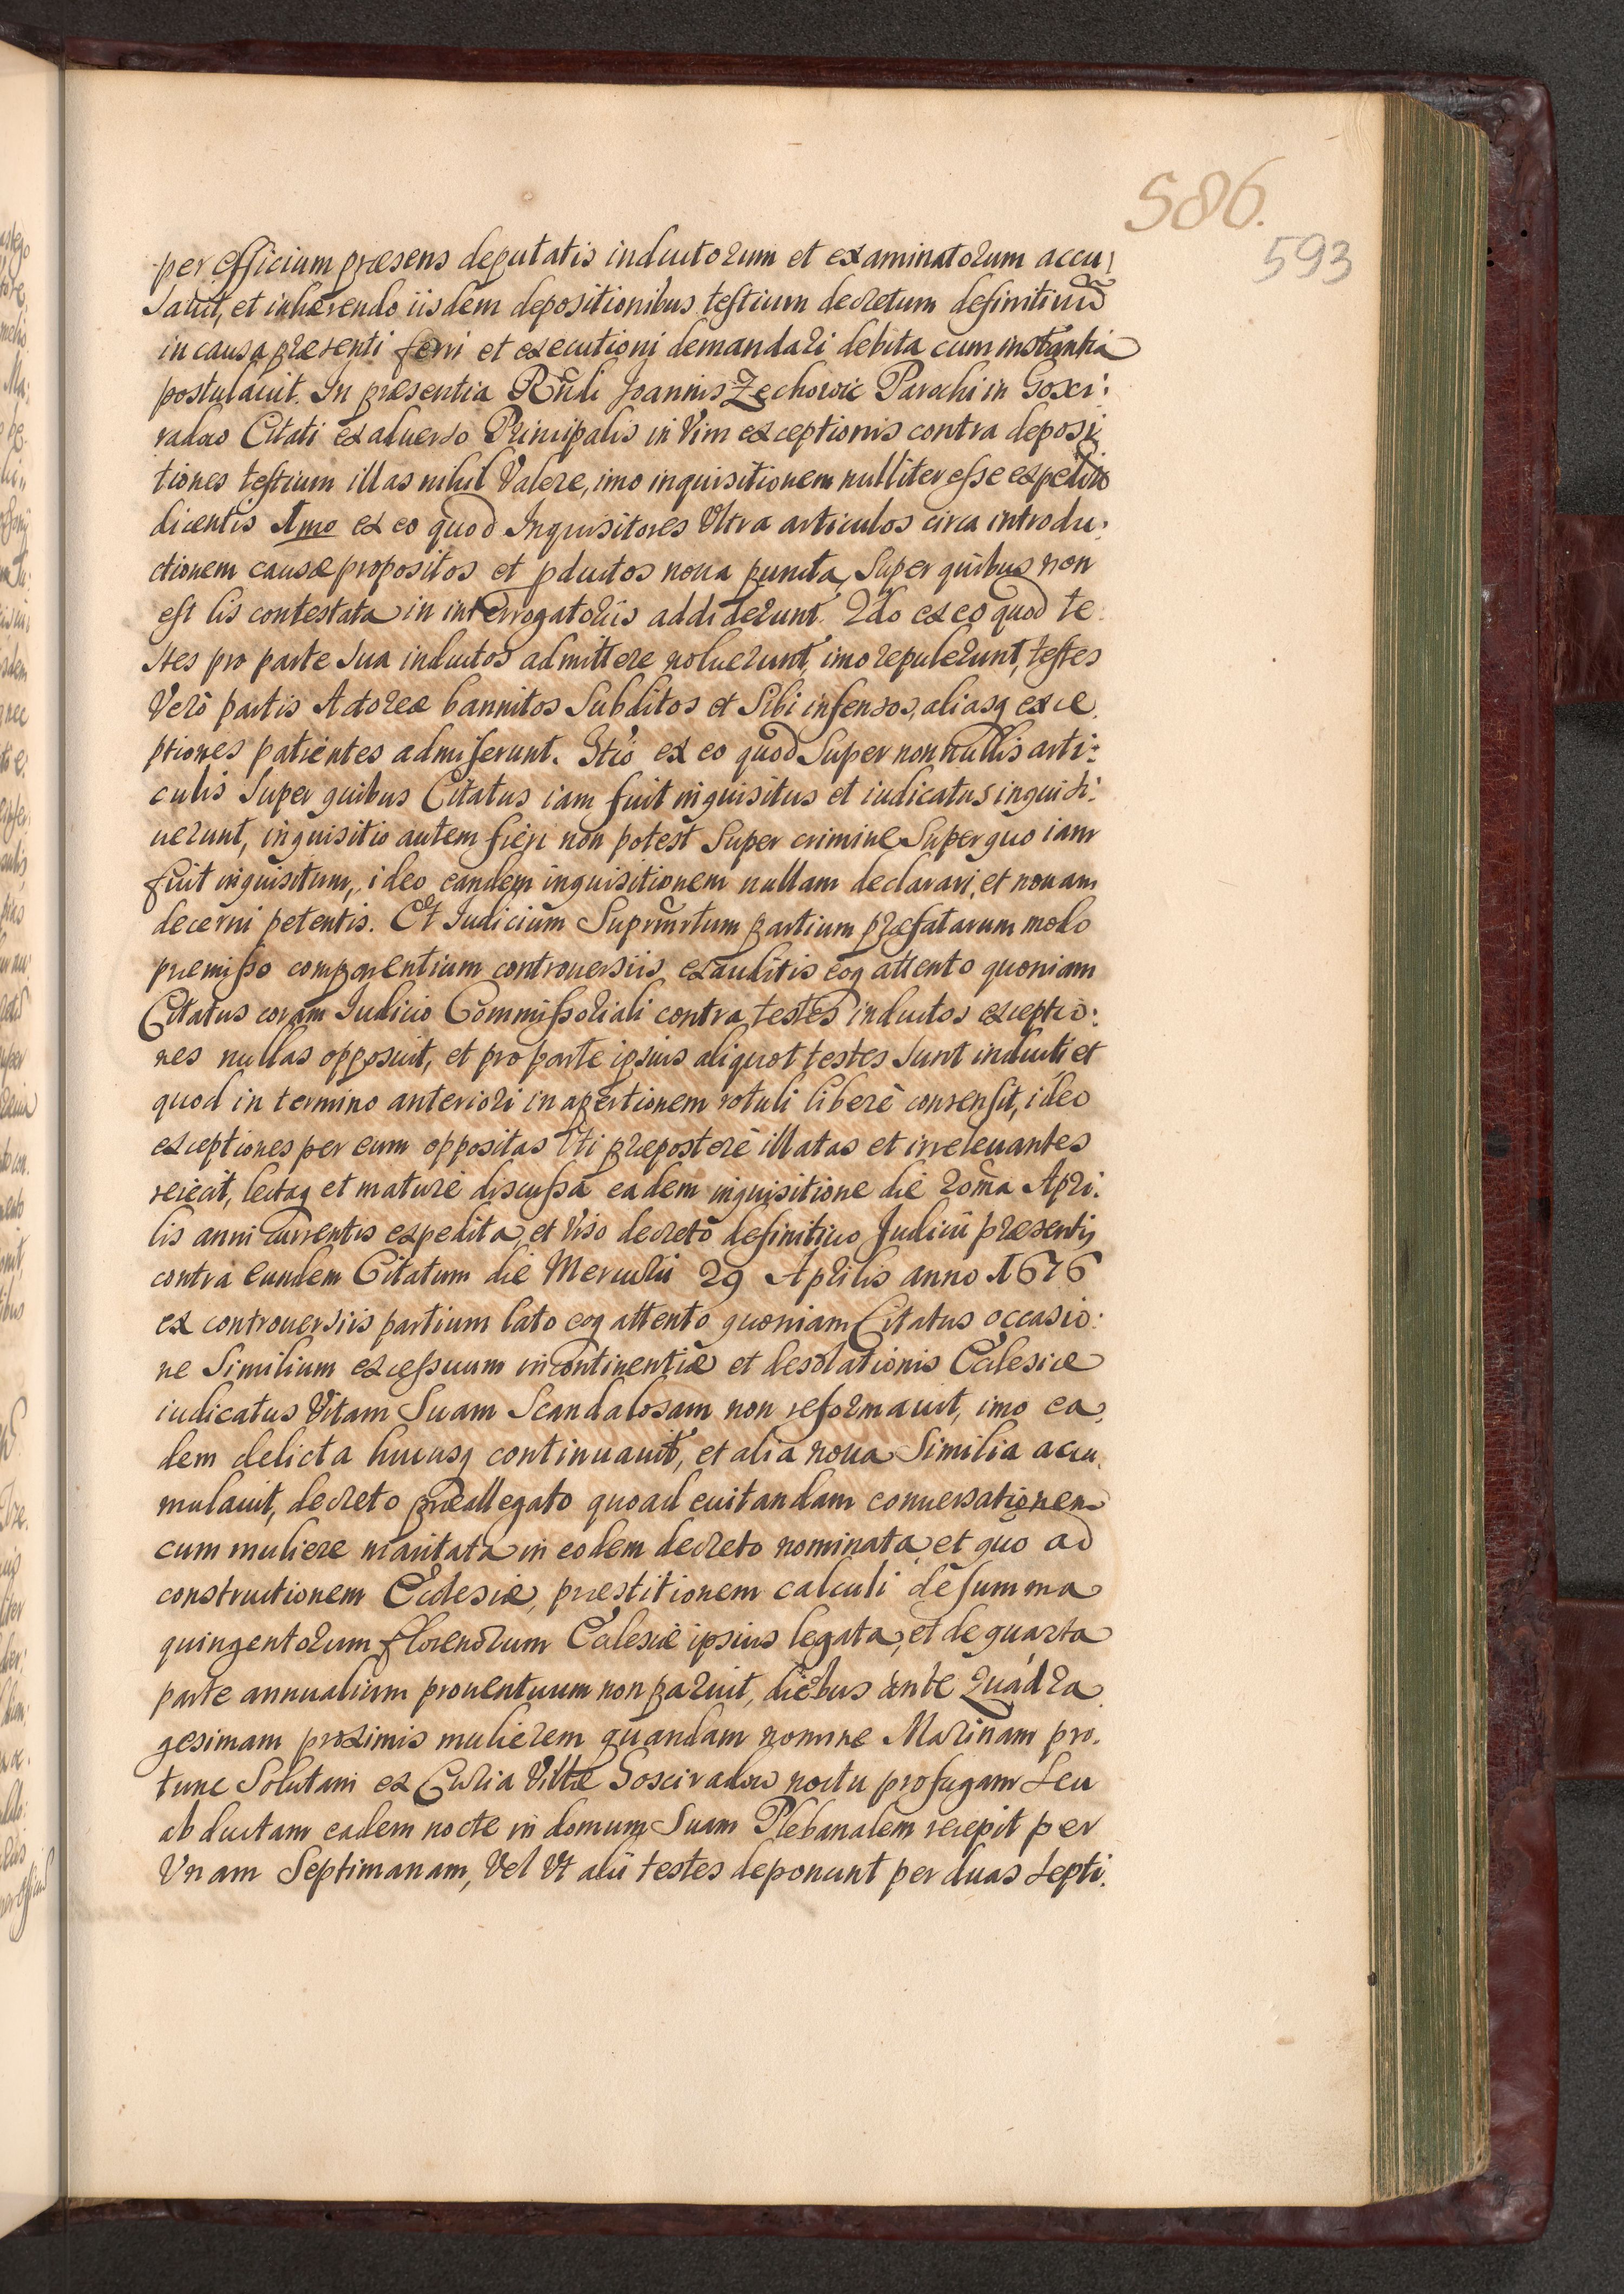 586.
593
per officium præsens deputatis inductorum et examinatorum accu:
sauit, et inhærendo iisdem depositionibus testium decretum definitiuũ
in causa præsenti ferri et executioni demandari debita cum instantia
postulauit. In præsentia Rñdi Joannis Zechowic Parochi in Gosci:
radow Citati ex aduerso Principalis in Vim exceptionis contra deposi
tiones testium illas nihil Valere, imo inquisitionem nulliter esse expeditã
dicentis 1mo ex eo quod Inquisitores Vltra articulos circa introdu:
ctionem causæ propositos et pductos noua puncta, Super quibus non
est lis contestata in interrogatoriis addiderunt. 2do ex eo quod te
stes pro parte sua inductos admittere noluerunt, imo repulerunt, testes
Verò partis Actoreæ bannitos Subditos et Sibi infensos, aliasq exce
ptiones patientes admiserunt. 3tiò ex eo quod Super nonnullis arti:
culis Super quibus Citatus iam fuit inquisitus et iudicatus inquisi:
uerunt, inquisitio autem fieri non potest Super crimine Super quo iam
fuit inquisitum, ideo eandem inquisitionem nullam declarari, et nouam
decerni petentis. Et Iudicium partium præfatarum modo
præmisso comparentium controuersiis exauditis eoq attento quoniam
Citatus coram Iudicio Commissoriali contra testes inductos exceptio:
nes nullas opposuit, et pro parte ipsius aliquot testes sunt inducti et
quod in termino anteriori in apertionem rotuli liberè consensit, ideo
exceptiones per eum oppositas Vti præposterè illatas et irreleuantes
reiecit, lectaq et maturè discussa eadem inquisitione die 20ma Apri:
lis anni currentis expedita, et Viso decreto definitiuo Judicii præsentis
contra eundem Citatum die Mercurii 29 Aprilis anno 1676
ex controuersiis partium lato eoq attento quoniam Citatus occasio:
ne Similium excessuum incontinentiæ et desolationis Ecclesiæ
iudicatus Vitam Suam Scandalosam non reformauit, imo ea
dem delicta hucusq continuauit, et alia noua Similia accu
mulauit, decreto præallegato quoad euitandam conuersationem
cum muliere maritata in eodem decreto nominata, et quo ad
constructionem Ecclesiæ, præstitionem calculi de summa
quingentorum florenorum Ecclesiæ ipsius legata, et de quarta
parte annualium prouentuum non paruit, diebus ante Quadra
gesimam proximis mulierem quandam nomine Marinam pro
tunc Solutam ex Curia Villæ Gosciradow noctu profugam seu
abductam eadem nocte in domum Suam Plebanalem recepit per
Vnam Septimanam, Vel Vt alii testes deponunt per duas septi.